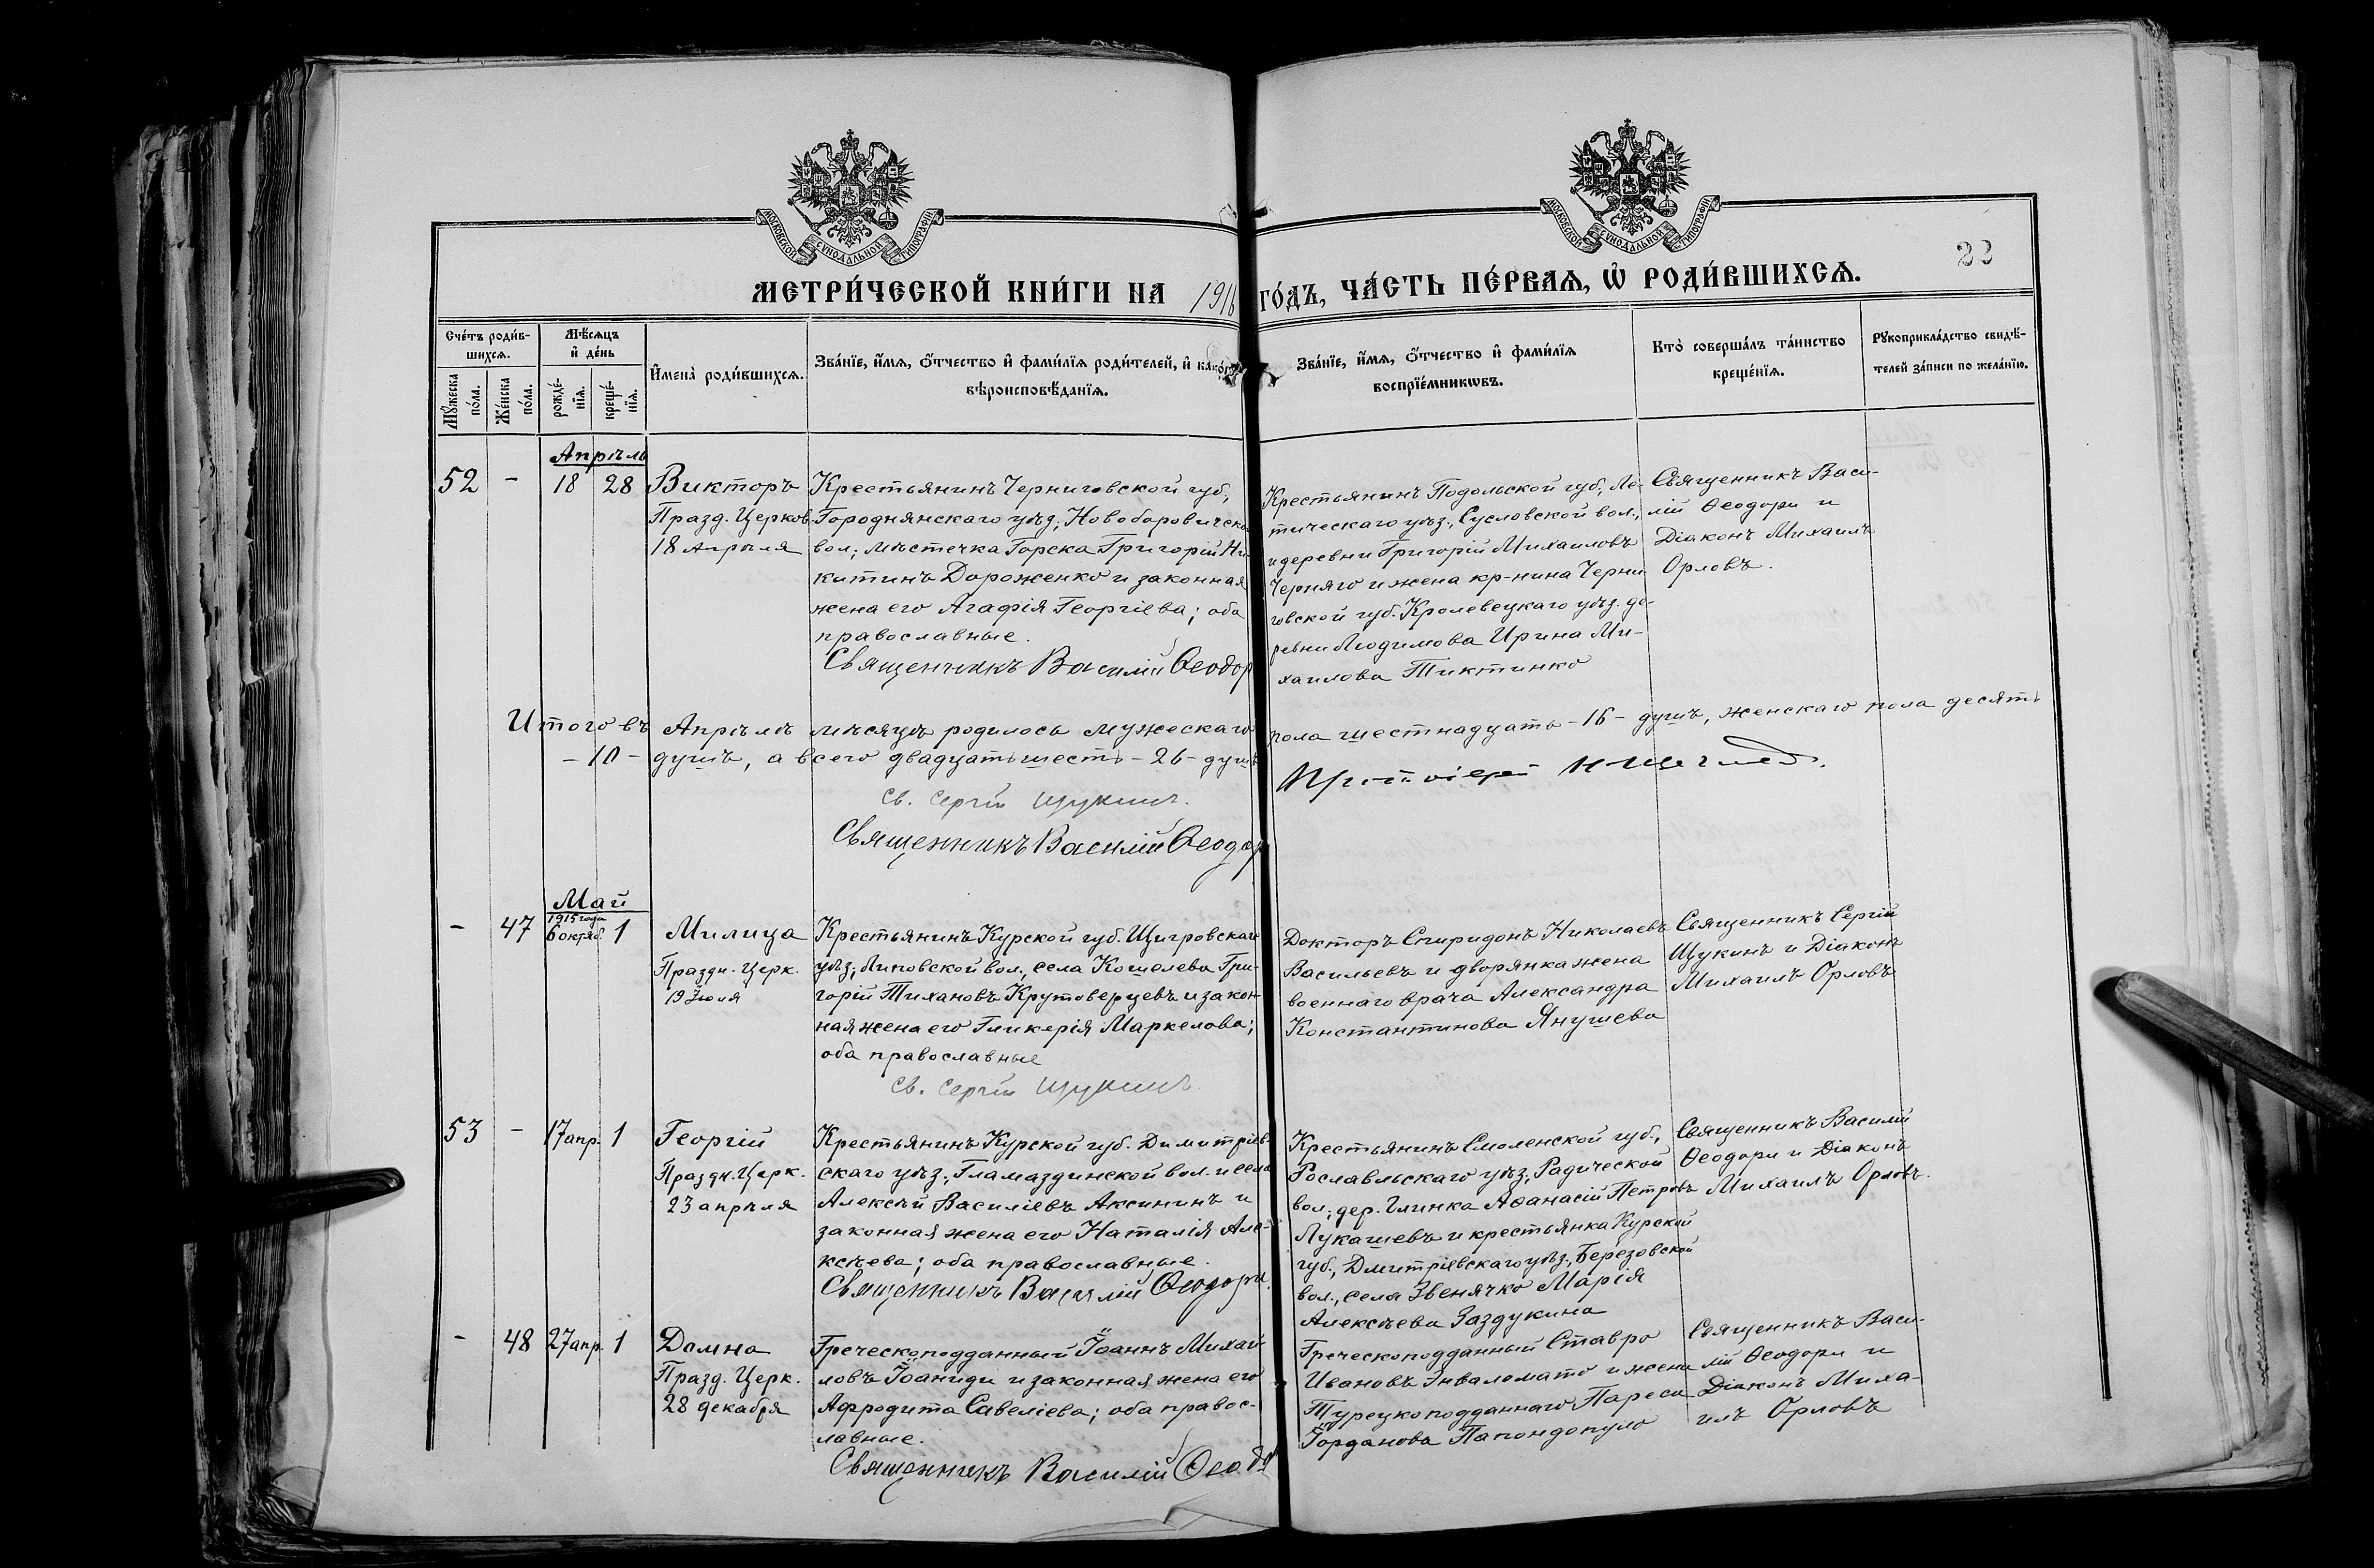 МОСКОВСКОЙ СУНОДАЛЬНОЙ ТИПОГРАФІИ
МОСКОВСКОЙ СУНОДАЛЬНОЙ ТИПОГРАФІИ
22
МЕТРИ́ЧЕСКОЙ КНИ́ГИ НА 1916 ГО́ДЪ, ЧА́СТЬ ПЕ́РВАѦ, Ѡ҆ РОДИ́ВШИХСѦ.
Сче́тъ роди́в-
шихсѧ.
Мꙋ́жеска по́ла.
Же́нска по́ла.
Мѣ́сѧцъ
и҆ де́нь
рожде́-
нїѧ.
креще́-
нїѧ.
И҆мена̀ роди́вшихсѧ.
Зва́нїе, и҆́мѧ, ѻ҆́тчество и҆ фами́лїѧ роди́телей, и҆ како́гѡ
вѣроисповѣ́данїѧ.
Зва́нїе, и҆́мѧ, ѻ҆́тчество и҆ фами́лїѧ
воспрїе́мникѡвъ.
Кто̀ соверша́лъ та́инство
креще́нїѧ.
Рꙋкоприкла́дство свидѣ́-
телей за́писи по жела́нїю.
Апрѣль
52 - 18 28
Викторъ
Празд. Церков.
18 апрѣля
Крестьянинъ Черниговской губ.,
Городнянскаго уѣзд., Новоборовичской
вол., мѣстечка Горска Григорій Ни-
китинъ Дороженко и законная
жена его Агафія Георгіева; оба
православные.
Священникъ Василій Ѳеодор
Крестьянинъ Подольской губ., Ле-
тическаго уѣз., Сусловской вол.,
и деревни Григорій Михаиловъ
Черняго и жена кр-нина Черни-
говской губ. Кролевецкаго уѣз. де-
ревни Людимова Ирина Ми-
хаилова Тиктинко
Священникъ Васи-
лій Ѳеодори и
Діаконъ Михаилъ
Орловъ.
Итого въ Апрѣлѣ мѣсяцѣ родилось мужескаго пола шестнадцать -16- душъ, женскаго пола десять
-10- душъ, а всего двадцать шесть -26- душъ
Протоіерей
Св. Сергій Щукинъ.
Священникъ Василій Ѳеодор
Май
- 47 1915 года
6 октяб. 1
Милица
Праздн. Церк.
19 Іюля
Крестьянинъ Курской губ. Щигровскаго
уѣз., Липовской вол., села Кошелева Гри-
горій Тихановъ Крутоверцевъ и закон-
ная жена его Гликерія Маркелова;
оба православные
Св. Сергій Щукинъ
Докторъ Спиридонъ Николаевъ
Васильевъ и дворянка жена
военнаго врача Александра
Константинова Янушева
Священникъ Сергій
Щукинъ и Діаконъ
Михаилъ Орловъ
53 - 17 апр. 1
Георгій
Праздн. Церк.
23 апрѣля
Крестьянинъ Курской губ. Димитріев-
скаго уѣз., Гламаздинской вол. и села
Алексѣй Василіевъ Аксининъ и
законная жена его Наталія Але-
ксѣева; оба православные.
Священникъ Василій Ѳеодори.
Крестьянинъ Смоленской губ.,
Рославльскаго уѣз., Радической
вол., дер. Глинка Аѳанасій Петровъ
Лукашевъ и крестьянка Курской
губ., Дмитріевскаго уѣз., Березовской
вол., села Звенячко Марія
Алексѣева Заздукина
Священникъ Василій
Ѳеодори и Діаконъ
Михаилъ Орловъ.
- 48 27 апр. 1
Домна
Празд. Церк.
28 декабря
Греческоподданный Іоаннъ Михай-
ловъ Іоаниди и законная жена его
Афродита Савеліева; оба правос-
лавные.
Священникъ Василій Ѳеодо
Греческоподданный Ставро
Ивановъ Энваломато и жена
Турецкоподданнаго Пареса
Іорданова Папондопуло
Священникъ Васи-
лій Ѳеодори и
Діаконъ Миха-
илъ Орловъ